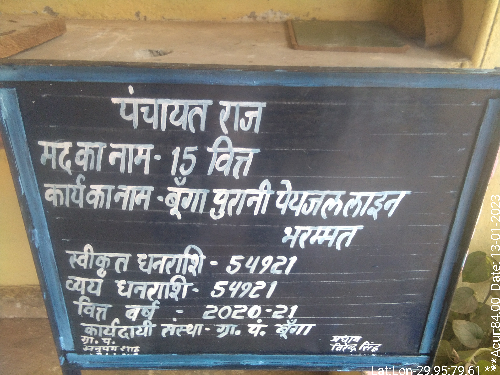 पंचायत राज
मद का नाम- 15 वित्त
कार्य का नाम - बूँगा पुरानी पेयजल लाइन
भरम्मत
स्वीकृत धनराशि - 54921
व्यय धनराशि - 54921
वित्त वर्ष - 2020-21
कार्यदायी सस्था- ग्रा. पं. बूँगा
ग्रा. पं.
प्रधान
सिंह
Lat Lon-29.95:79.61 ***Acur:84.00, Date: 13-01-2023